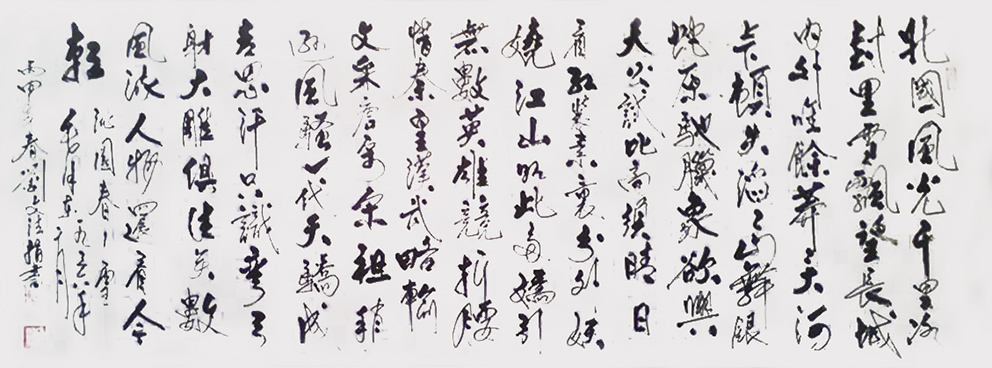 北國風光千里冰
封里雪飄望長城
内外唯餘莽大河
上下頓失滔〻山舞銀
蛇原馳臘象欲與
天公試比高須晴日
看紅裝素裹分外妖
嬈江山如此多嬌引
無數英雄競折腰
惜秦皇漢武略輸
文采唐宗宋祖稍
遜風騷一代天驕成
吉思汗只識彎弓
射大雕俱往矣數
風流人物還看今
朝
沁園春雪
毛澤東一九三六年二月
丙申 春劉 指書